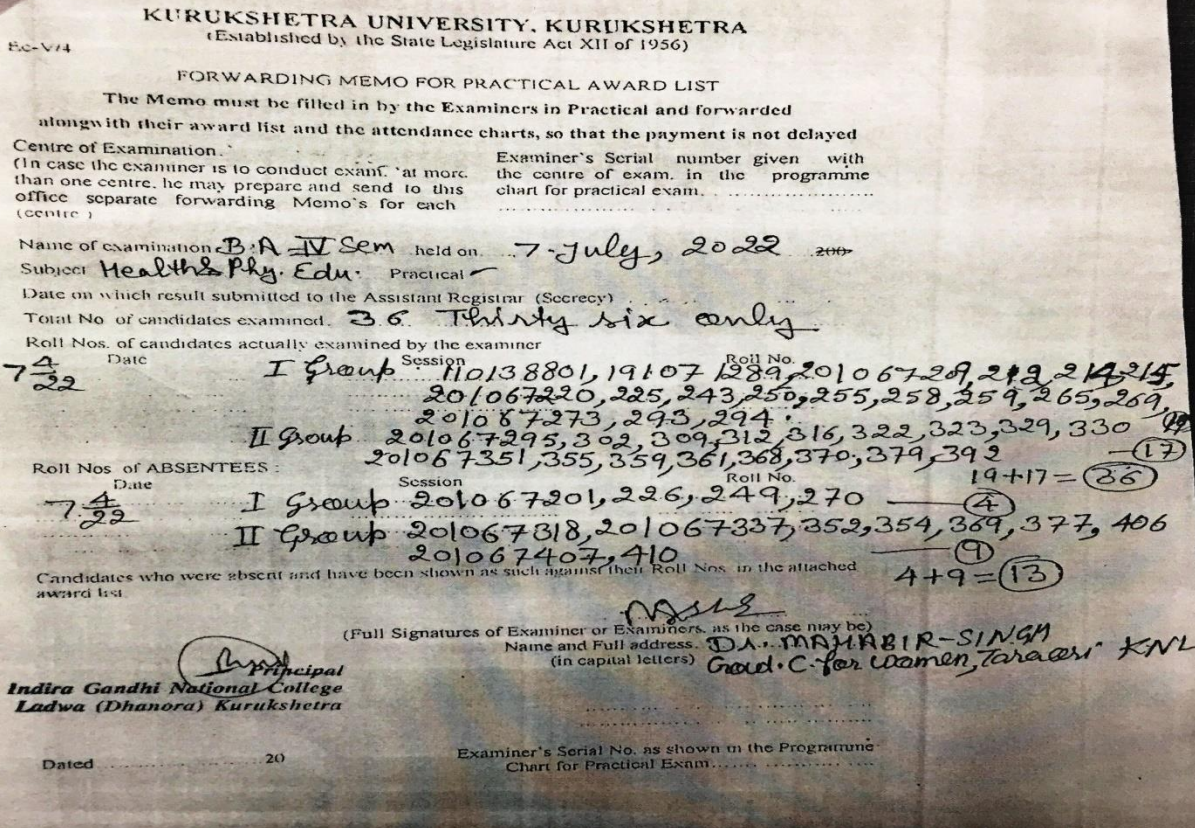 KURUKSHETRA UNIVERSITY, KURUKSHETRA
(Established by the State Legislature Act XII of 1956)
Ec-V/4
FORWARDING MEMO FOR PRACTICAL AWARD LIST
The Memo must be filled in by the Examiners in Practical and forwarded
alongwith their award list and the attendance charts, so that the payment is not delayed
Centre of Examination.
(In case the examiner is to conduct exam. at more
than one centre. he may prepare and send to this
office separate forwarding Memo's for each
(centre)
Examiner's Serial number given with
the centre of exam. in the programme
chart for practical exam.
Name of examination B.A IV Sem held on 7-July, 2022 200
Subject Health & Phy. Edu. Practical
Date on which result submitted to the Assistant Registrar (Secrecy)
Total No. of candidates examined. 36 Thirty six only.
Roll Nos. of candidates actually examined by the examiner
Date Session Roll No.
7 4/22 I Group 110138801, 191071289, 201067209, 212, 214, 215,
201067220, 225, 243, 250, 255, 258, 259, 265, 269,
201067273, 293, 294.
II Group 201067295, 302, 309, 312, 316, 322, 323, 329, 330
201067351, 355, 359, 361, 368, 370, 379, 392 — 17
19+17 = 36
Roll Nos of ABSENTEES :
Date Session Roll No.
7 4/22 I Group 201067201, 226, 249, 270 — 4
II Group 201067318, 201067337, 352, 354, 369, 377, 406
201067407, 410 — 9
4+9 = 13
Candidates who were absent and have been shown as such against their Roll Nos. in the attached
award list.
(Full Signatures of Examiner or Examiners. as the case may be)
Name and Full address. Dr. MAHABIR-SINGH
(in capital letters) C. for women, KNL
Principal
Indira Gandhi National College
Ladwa (Dhanora) Kurukshetra
Dated 20
Examiner's Serial No. as shown in the Programme
Chart for Practical Exam